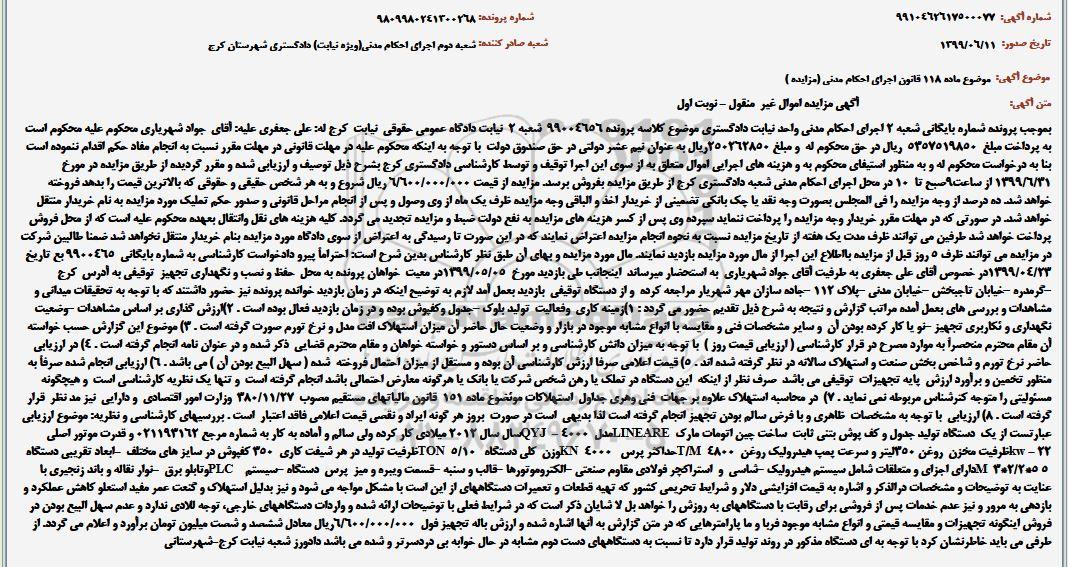 شماره آگهی: ۹۹۱۰۴۶۲۶۱۷۵۰۰۰۷۷ شماره پرونده: ۹۸۰۹۹۸۰۲۴۱۳۰۰۲۶۸
تاریخ صدور: ۱۳۹۹/۰۶/۱۱ شعبه صادر کننده: شعبه دوم اجرای احکام مدنی(ویژه نیابت) دادگستری شهرستان کرج
موضوع آگهی: موضوع ماده ۱۱۸ قانون اجرای احکام مدنی (مزایده )
متن آگهی: آگهی مزایده اموال غیر منقول – نوبت اول
بموجب پرونده شماره بایگانی شعبه ۲ اجرای احکام مدنی واحد نیابت دادگستری موضوع کلاسه پرونده ۹۹۰۰۴۶۵۶ شعبه ۲ نیابت دادگاه عمومی حقوقی نیابت کرج له: علی جعفری علیه: آقای جواد شهریاری محکوم علیه محکوم است
به پرداخت مبلغ ۵۳۵۷۵۱۹۸۵۰ ریال در حق محکوم له و مبلغ ۲۵۰۲۶۲۸۵۰ریال به عنوان نیم عشر دولتی در حق صندوق دولت با توجه به اینکه محکوم علیه در مهلت قانونی در مهلت مقرر نسبت به انجام مفاد حکم اقدام ننموده است
بنا به درخواست محکوم له و به منظور استیفای محکوم به و هزینه های اجرایی اموال متعلق به از سوی این اجرا توقیف و توسط کارشناسی دادگستری کرج بشرح ذیل توصیف و ارزیابی شده و مقرر گردیده از طریق مزایده در مورخ
۱۳۹۹/۶/۳۱ از ساعت۹صبح تا ۱۰ در محل اجرای احکام مدنی شعبه دادگستری کرج از طریق مزایده بفروش برسد. مزایده از قیمت ۶/۶۰۰/۰۰۰/۰۰۰ ریال شروع و به هر شخص حقیقی و حقوقی که بالاترین قیمت را بدهد فروخته
خواهد شد. ده درصد از وجه مزایده را فی المجلس بصورت وجه نقد یا چک بانکی تضمینی از خریدار اخذ و الباقی وجه مزایده ظرف یک ماه از وی وصول و پس از انجام مراحل قانونی و صدور حکم تملیک مورد مزایده به نام خریدار منتقل
خواهد شد. در صورتی که در مهلت مقرر خریدار وجه مزایده را پرداخت ننماید سپرده وی پس از کسر هزینه های مزایده به نفع دولت ضبط و مزایده تجدید می گردد. کلیه هزینه های نقل وانتقال بعهده محکوم علیه است که از محل فروش
پرداخت خواهد شد طرفین می توانند ظرف مدت یک هفته از تاریخ مزایده نسبت به نحوه انجام مزایده اعتراض نمایند که در این صورت تا رسیدگی به اعتراض از سوی دادگاه مورد مزایده بنام خریدار منتقل نخواهد شد ضمنا طالبین شرکت
در مزایده می توانند ظرف ۵ روز قبل از مزایده بااطلاع این اجرا از مال مورد مزایده بازدید نمایند. مال مورد مزایده و بهای آن طبق نظر کارشناس بدین شرح است: احتراما پیرو دادخواست کارشناسی به شماره بایگانی ۹۹۰۰۴۶۵ بع تاریخ
۱۳۹۹/۰۴/۲۳در خصوص آقای علی جعفری به طرفیت آقای جواد شهریاری به استحضار میرساند اینجانب طی بازدید مورخ ۱۳۹۹/۰۵/۰۵در معیت خواهان پرونده به محل حفظ و نصب و نگهداری تجهیز توقیفی به آدرس کرج
–گرمدره –خیابان تاجبخش –خیابان مدنی –پلاک ۱۱۲ –جاده سازان مهر شهریار مراجعه کرده و از دستگاه توقیفی بازدید بعمل آمد لازم به توضیح اینکه در زمان بازدید خوانده پرونده نیز حضور داشتند که با توجه به تحقیقات میدانی و
مشاهدات و بررسی های بعمل آمده مراتب گزارش و نتیجه به شرح ذیل تقدیم حضور می گردد : ۱)زمینه کاری وفعالیت تولید بلوک –جدول وکفپوش بوده و در زمان بازدید فعال بوده است . ۲)ارزش گذاری بر اساس مشاهدات –وضعیت
نگهداری و بکاربری تجهیز –نو یا کار کرده بودن آن و سایر مشخصات فنی و مقایسه با انواع مشابه موجود در بازار و وضعیت حال حاضر آن میزان استهلاک افت مدل و نرخ تورم صورت گرفته است . ۳) موضوع این گزارش حسب خواسته
آن مقام محترم منحصراً به موارد مصرح در قرار کارشناسی ( ارزیابی قیمت روز ) با توجه به میزان دانش کارشناسی و بر اساس دستور و خواسته خواهان و مقام محترم قضایی ذکر شده و در عنوان نامه انجام گرفته است . ۴) در ارزیابی
حاضر نرخ تورم و شاخص بخش صنعت و استهلاک سالانه در نظر گرفته شده اند . ۵) قیمت اعلامی صرفا ارزش کارشناسی آن بوده و مستقل از میزان احتمال فروخته شده ( سهل البیع بودن آن ) می باشد . ۶) ارزیابی انجام شده صرفاً به
منظور تخمین و برآورد ارزش پایه تجهیزات توقیفی می باشد صرف نظر از اینکه این دستگاه در تملک یا رهن شخص شرکت یا بانک یا هرگونه معارض احتمالی باشد انجام گرفته است و تنها یک نظریه کارشناسی است و هیچگونه
مسئولیتی را متوجه کنرشناس مربوطه نمی نماید . ۷) در محاسبه استهلاک علاوه بر جهات فنی وهری جداول استهلاکات موضوع ماده ۱۵۱ قانون مالیاتهای مستقیم مصوب ۳۸۰/۱۱/۲۷ وزارت امور اقتصادی و دارایی نیز مد نظر قرار
گرفته است . ۸) ارزیابی با توجه به مشخصات ظاهری و با فرض سالم بودن تجهیز انجام گرفته است لذا بدیهی است در صورت بروز هر گونه ایراد و نقصی قیمت اعلامی فاقد اعتبار است . بررسیهای کارشناسی و نظریه: موضوع ارزیابی
عبارتست از یک دستگاه تولید جدول و کف پوش بتنی ثابت ساخت چین اتومات مارک LINEAREمدل QYJ – ۴۰۰۰سال سال ۲۰۱۷ میلادی کار کرده ولی سالم و آماده به کار به شماره مرجع ۰۲۱۱۹۳۱۶۲ و قدرت موتور اصلی
۲۲ – kwظرفیت مخزن روغن ۳۵۰لیتر و سرعت پمپ هیدرولیک روغن ۴۸۰۰ T/Mحداکثر پرس ۴۰۰۰ KNوزن کلی دستگاه ۵/۱۰ TONظرفیت تولید در هر شیفت کاری ۳۵۰ کفپوش در سایز های مختلف –ابعاد تقریبی دستگاه
۵ ۵*۲/۲*۳ Mدارای اجزای و متعلقات شامل سیستم هیدرولیک –شاسی و استراکچر فولادی مقاوم صنعتی –الکتروموتورها –قالب و سنبه –قسمت ویبره و میز پرس دستگاه –سیستم PLCوتابلو برق –نوار نقاله و باند زنجیری با
عنایت به توضیحات و مشخصات درالذکر و اشاره به قیمت افزایشی دلار و شرایط تحریمی کشور که تهیه قطعات و تعمیرات دستگاههای از این است با مشکل مواجه می شود و نیز بدلیل استهلاک و گنعت عمر مفید استعلو کاهش عملکرد و
بازدهی به مرور و نیز عدم خدمات پس از فروشی برای رقابت با دستگاههای به روزش را خواهد بل لا شایان ذکر است که در شرایط فعلی با توضیحات ارائه شده و واردات دستگاههای خارجی، توجه للادی ندارد و عدم سهل البیع بودن در
فروش اینگونه تجهیزات و مقایسه قیمتی و انواع مشابه موجود فربا و ما پارامترهایی که در متن گزارش به آنها اشاره شده و ارزش باله تجهیز فول ۶/۶۰۰/۰۰۰/۰۰۰ریال معادل ششصد و شصت میلیون تومان برآورد و اعلام می گردد. از
طرفی می باید خاطرنشان کرد با توجه به ای دستگاه مذکور در روند تولید قرار دارد تا نسبت به دستگاههای دست دوم مشابه در حال خوابه بی دردسرتر و شده می باشد دادورز شعبه نیابت کرج–شهرستانی